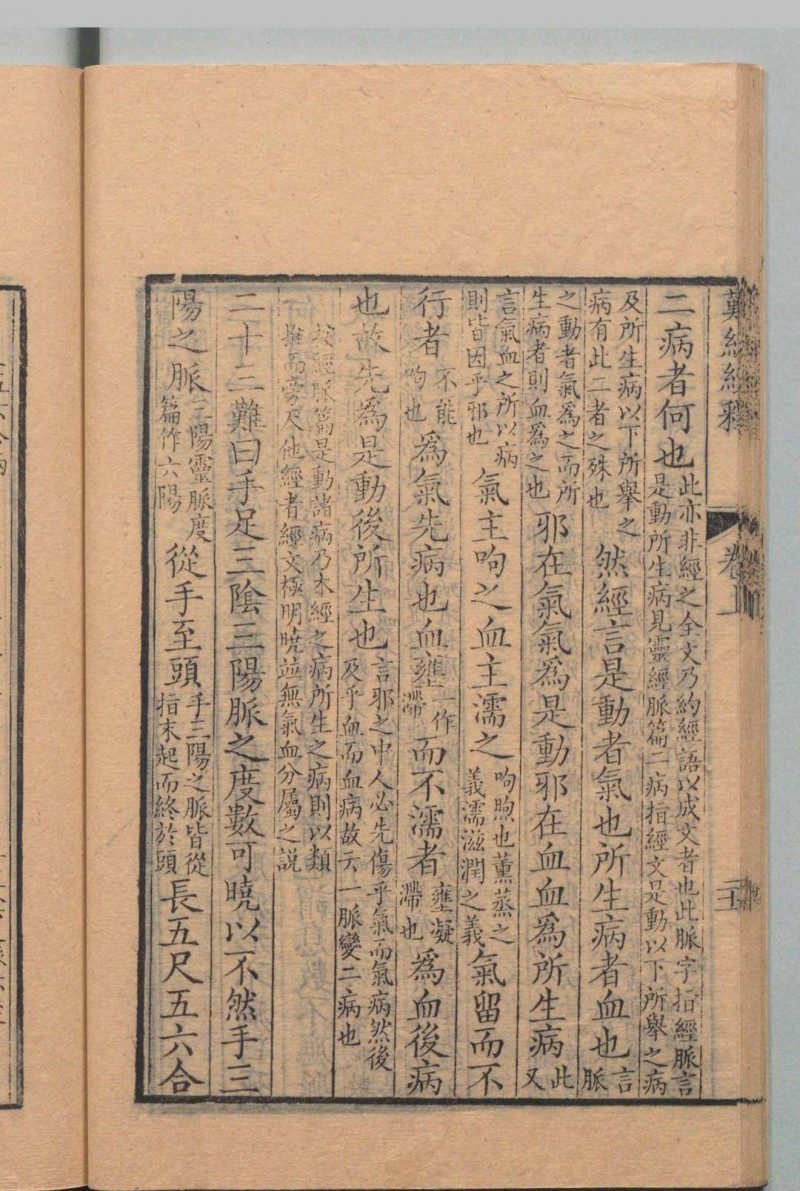 難經經釋 卷上
二病者何也此亦非經之全文乃約經語以成文者也此脈字指經脈言是動所生病見靈經脈篇二病指經文是動以下所舉之病
及所生病以下所舉之病有此二者之殊也然經言是動者氣也所生病者血也言脈
之動者氣爲之而所生病者則血爲之也邪在氣氣爲是動邪在血血爲所生病此又
言氣血之所以病則皆因乎邪也氣主呴之血主濡之呴煦也薰蒸之義濡滋潤之義氣留而不
行者不能呴也爲氣先病也血壅一作滯而不濡者壅凝滯也爲血後病
也故先爲是動後所生也言邪之中人必先傷乎氣而氣病然後及乎血而血病故云一脈變二病也
按經脈篇是動諸病乃本經之病所生之病則以類推而旁及他經者經文極明曉並無氣血分屬之說
二十三難曰手足三陰三陽脈之度數可曉以不然手三
陽之脈三陽靈脈度篇作六陽從手至頭手三陽之脈皆從指末起而終於頭長五尺五六合